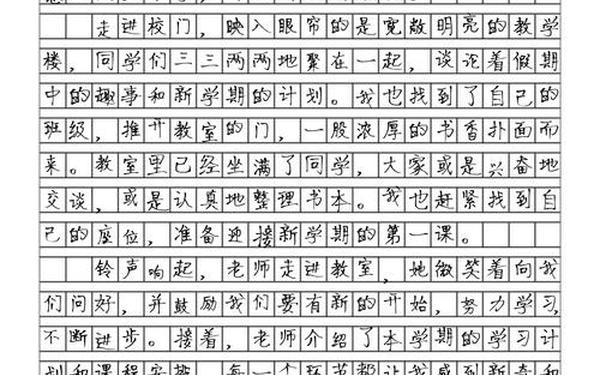 走进校门，映入眼帘的是宽敞明亮的教学
楼，同学们三三两两地聚在一起，谈论着假期
中的趣事和新学期的计划。我也找到了自己的
班级，推开教室的门，一股浓厚的书香扑面而
来。教室里已经坐满了同学，大家或是兴奋地
交谈，或是认真地整理书本。我也赶紧找到自
己的座位，准备迎接新学期的第一课。
铃声响起，老师走进教室，她微笑着向我
们问好，并鼓励我们要有新的开始，努力学习，
不断进步。接着，老师介绍了本学期的学习计
划和课程安排，每一个环节都让我感到新奇和